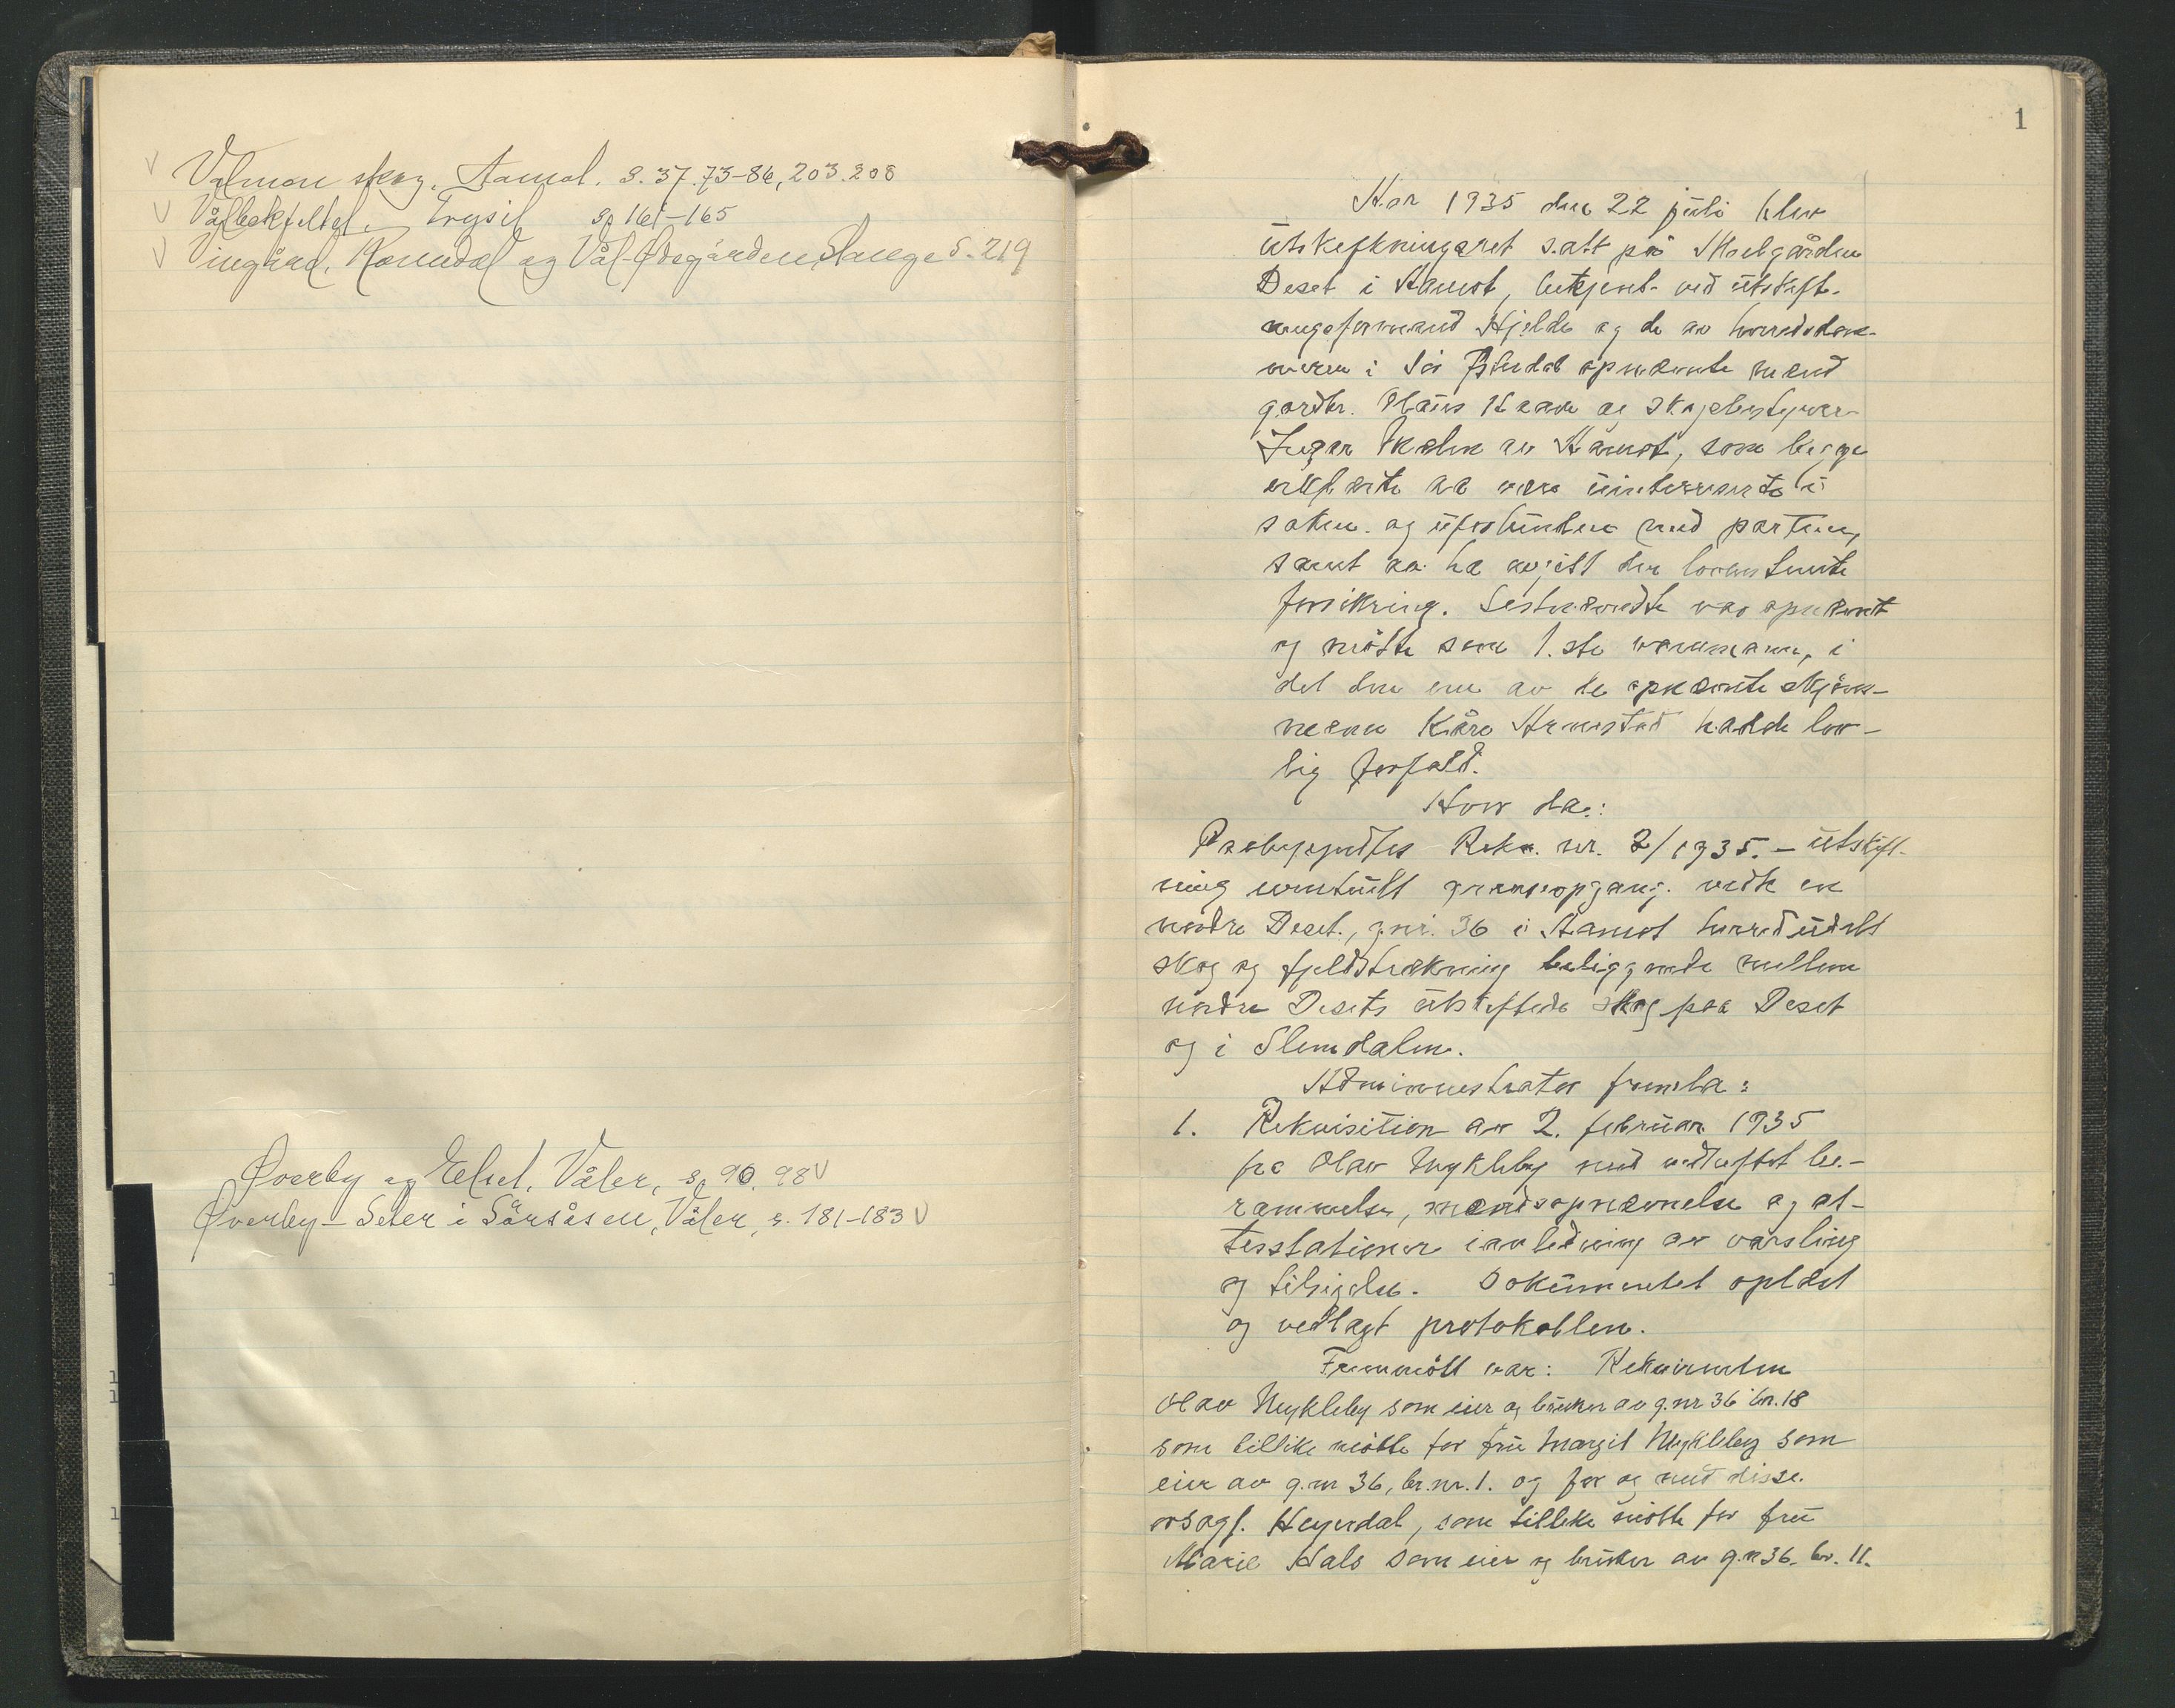 Valmen skog, Aamot. s. 37. 73-86, 203. 208
Vålbekfeltet. Trysil s. 161-165
Vingård, Romedal og Vål-Ødegården Stange s. 219
Øverby og Elset, Våler, s. 90. 98
Øverby-Seter i Sørsåsen, Våler, s. 181-183
1
Aar 1935 den 22 juli blev
utskiftningsret satt på Skolgården
Deset i Aamot, betjent ved utskift-
ningsformand Hjelde og de av herredsdom-
meren i Sør Østerdal opnævnte mænd
gardbr. Olaus Haave og skogbestyrer
Ingar Okolm av Aamot, som begge
erklærte aa være uinteressarte i
saken og uforbundne med partene,
samt aa ha avgitt den lovbestemte
forsikring. Sistnævndte var opnævnt
og møtte som 1.ste varamann, i
det den ene av de opnævnte skjøns-
menn Kåre Arnestad hadde lov-
lig forfald.
Hvor da:
Paabegyndtes Rekv. nr. 2/1935. - utskift-
ning eventuelt grenseopgang vedk en
nordre Deset, g.nr. 36 i Aamot herred udelt
skog og fjeldstrekning beliggende mellem
nordre Desets utskiftede skog paa Deset
og i Slemdalen.
Administrator fremla:
1. Rekvisition av 2. februar 1935
fra Olav Mykleby med vedheftet be-
rammelse, mændsopnævnelse og at-
testationer i anledning av varsling
og tilsigelse. Dokumentet oplæst
og vedlagt protokollen.
Fremmøtt var: Rekvirenten
Olav Mykleby som eier og bruker av g.nr 36 br. 18
som tillike møtte for fru Margit Mykleby som
eier av g.nr 36, br.nr. 1. og for og med disse
orsagf. Heyerdal, som tillike møtte for fru
Marie Hals som eier og bruker av g.n 36. br. 11.